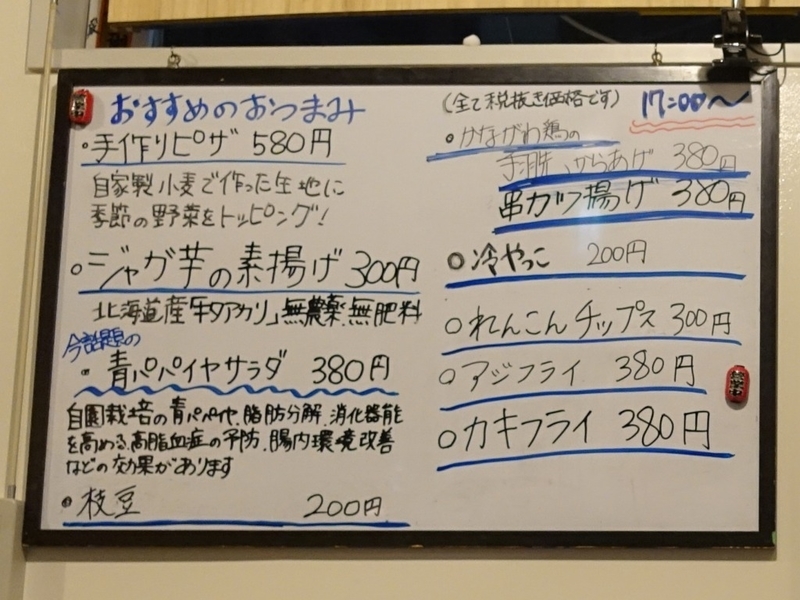 おすすめのおつまみ
・手作りピザ 580円
自家製小麦で作った生地に
季節の野菜をトッピング!
○ジャガ芋の素揚げ 300円
北海道産「キタアカリ」無農薬.無肥料
今話題の
・青パパイヤサラダ 380円
自園栽培の青パパイヤ.脂肪分解.消化器能
を高める.高脂血症の予防.腸内環境改善
などの効果があります
・枝豆 200円
(全て税抜き価格です) 17:00〜
・かながわ鶏の
手羽先 からあげ 380円
串カツ揚げ 380円
○冷やっこ 200円
○れんこんチップス 300円
○アジフライ 380円
○カキフライ 380円